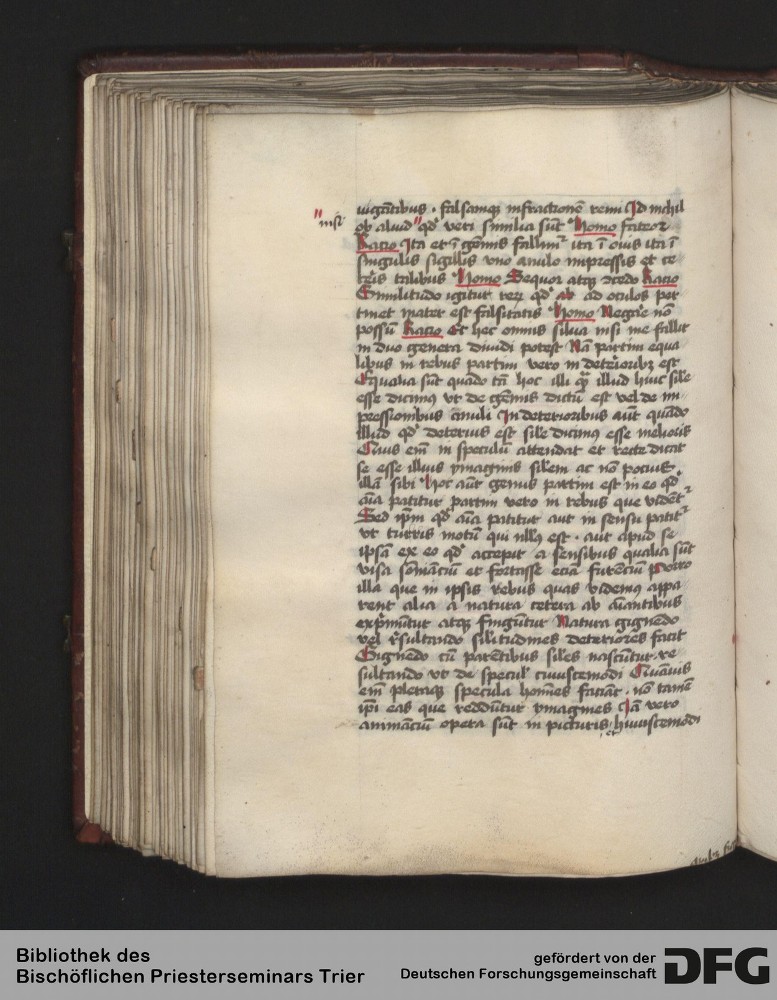 nisi
uigãtibus . falsamqꝫ infractionẽ remi Id nichil
ob aliud qđ veri similia sũt Homo fateor
Racio Ita et ĩ gẽmis fallimʳ ita ĩ ouis ita ĩ
singulis sigillis vno anulo impressis et ce
teris talibus Homo Sequor atqꝫ ↄcedo Racio
Similitudo igitur rerꝫ qđ ad oculos per
tinet mater est falsitatis Homo Negare nõ
possũ Racio Et hec omnis silua nisi me fallit
in duo genera diuidi potest Nã partim equa
libus in rebus partim vero in deterioribꝫ est
Equalia sũt quãdo tã hoc illi q̃ illud huic sil'e
esse dicimꝰ vt de gẽmis dictũ est vel de im
pressionibus ãnuli In deterioribus aũt quãdo
illud qđ deterius est sil'e dicimꝰ esse melioris
Quis em̃ in speculũ attendat et recte dicat
se esse illius ymaginis sil'em ac nõ pocius
illã sibi Hoc aũt genus partim est in eo qđ
aĩa patitur partim vero in rebus que vidẽtʳ
Sed ip̃m qđ aĩa patitur aut in sensu patitʳ
vt turris motũ qui nullꝰ est . aut apud se
ipsã ex eo qđ accepit a sensibus qualia sũt
visa sõmanciũ et fortasse eciã furenciũ porro
illa que in ipsis rebus quas videmus appa
rent alia a natura cetera ab aĩantibus
exprimũtur atqꝫ fingũtur Natura gignẽdo
vel r̃sultando sil'itudines deteriores facit
Gignẽdo cũ parẽtibus sil'es nascũtur . re
sultando vt de specul' cuiuscemodi Quãuis
em̃ pleraqꝫ specula hoĩes faciãt . nõ tamẽ
ip̃i eas que reddũtur ymagines Iã vero
animãciũ opera sũt in picturis huiuscemodi
et
Bibliothek des
Bischöflichen Priesterseminars Trier
gefördert von der
Deutschen Forschungsgemeinschaft
DFG